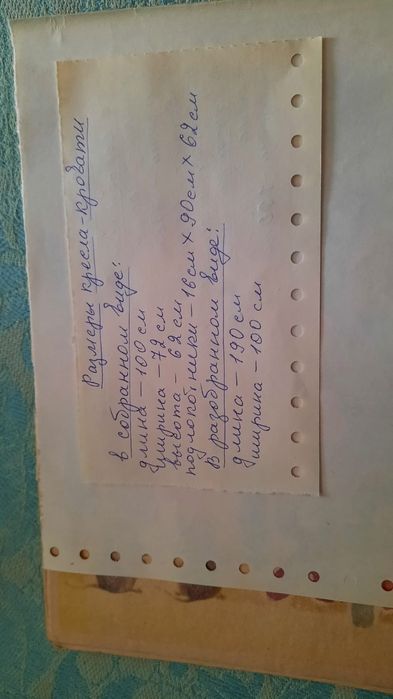 Размеры кресла-кровати
в собранном виде:
длина – 100 см
ширина – 72 см
высота – 62 см
подлокотники – 16 см х 90 см х 62 см
В разобранном виде:
длина – 190 см
ширина – 100 см